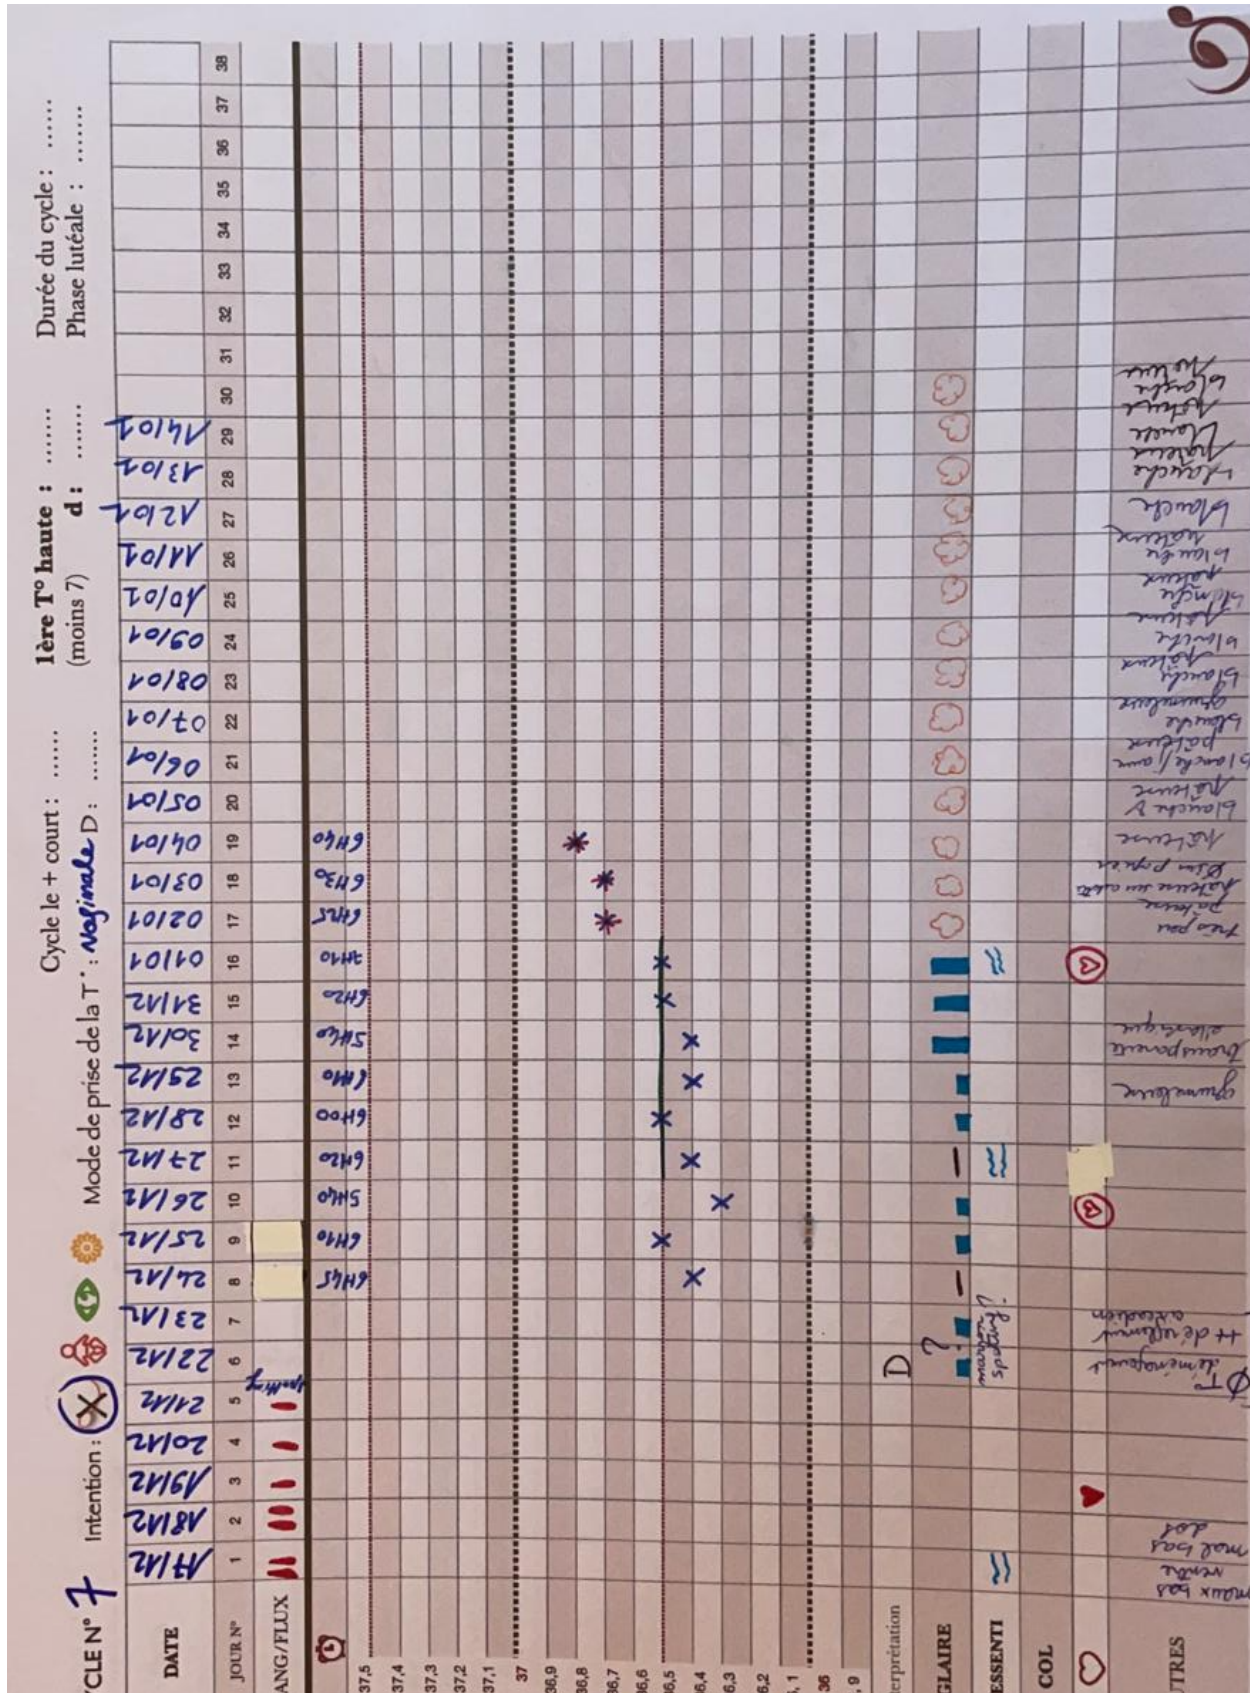 CYCLE N° 7
Intention : X
Cycle le + court : ......
1ère T° haute : .......
Durée du cycle : ......
Mode de prise de la T° : Vaginale D : ......
(moins 7) d : .......
Phase lutéale : ........
DATE 17/12 18/12 19/12 20/12 21/12 22/12 23/12 24/12 25/12 26/12 27/12 28/12 29/12 30/12 31/12 01/01 02/01 03/01 04/01 05/01 06/01 07/01 08/01 09/01 10/01 11/01 12/01 13/01 14/01
JOUR N° 1 2 3 4 5 6 7 8 9 10 11 12 13 14 15 16 17 18 19 20 21 22 23 24 25 26 27 28 29 30 31 32 33 34 35 36 37 38
ANG/FLUX spotting
6H45 6H10 5H40 6H20 6H00 6H10 5H40 6H20 7H10 6H25 6H30 6H40
37,5
37,4
37,3
37,2
37,1
37
36,9
36,8
36,7
36,6
36,5
36,4
36,3
6,2
, 1
36
, 9
erprétation D
GLAIRE ?
ESSENTI
COL
UTRES
maux bas ventre
mal bas dos
T° déménagement
grumeleuse
transparente
très peu
pâteuse
Ø sur papier
pâteuse
blanche
pâteuse
blanche/jaune
pâteuse
blanche
grumeleuse
blanche
pâteuse
blanche
pâteuse
blanche
pâteuse
blanche
pâteuse
blanche
blanche
pâteuse
blanche
pâteuse
blanche
pâteuse